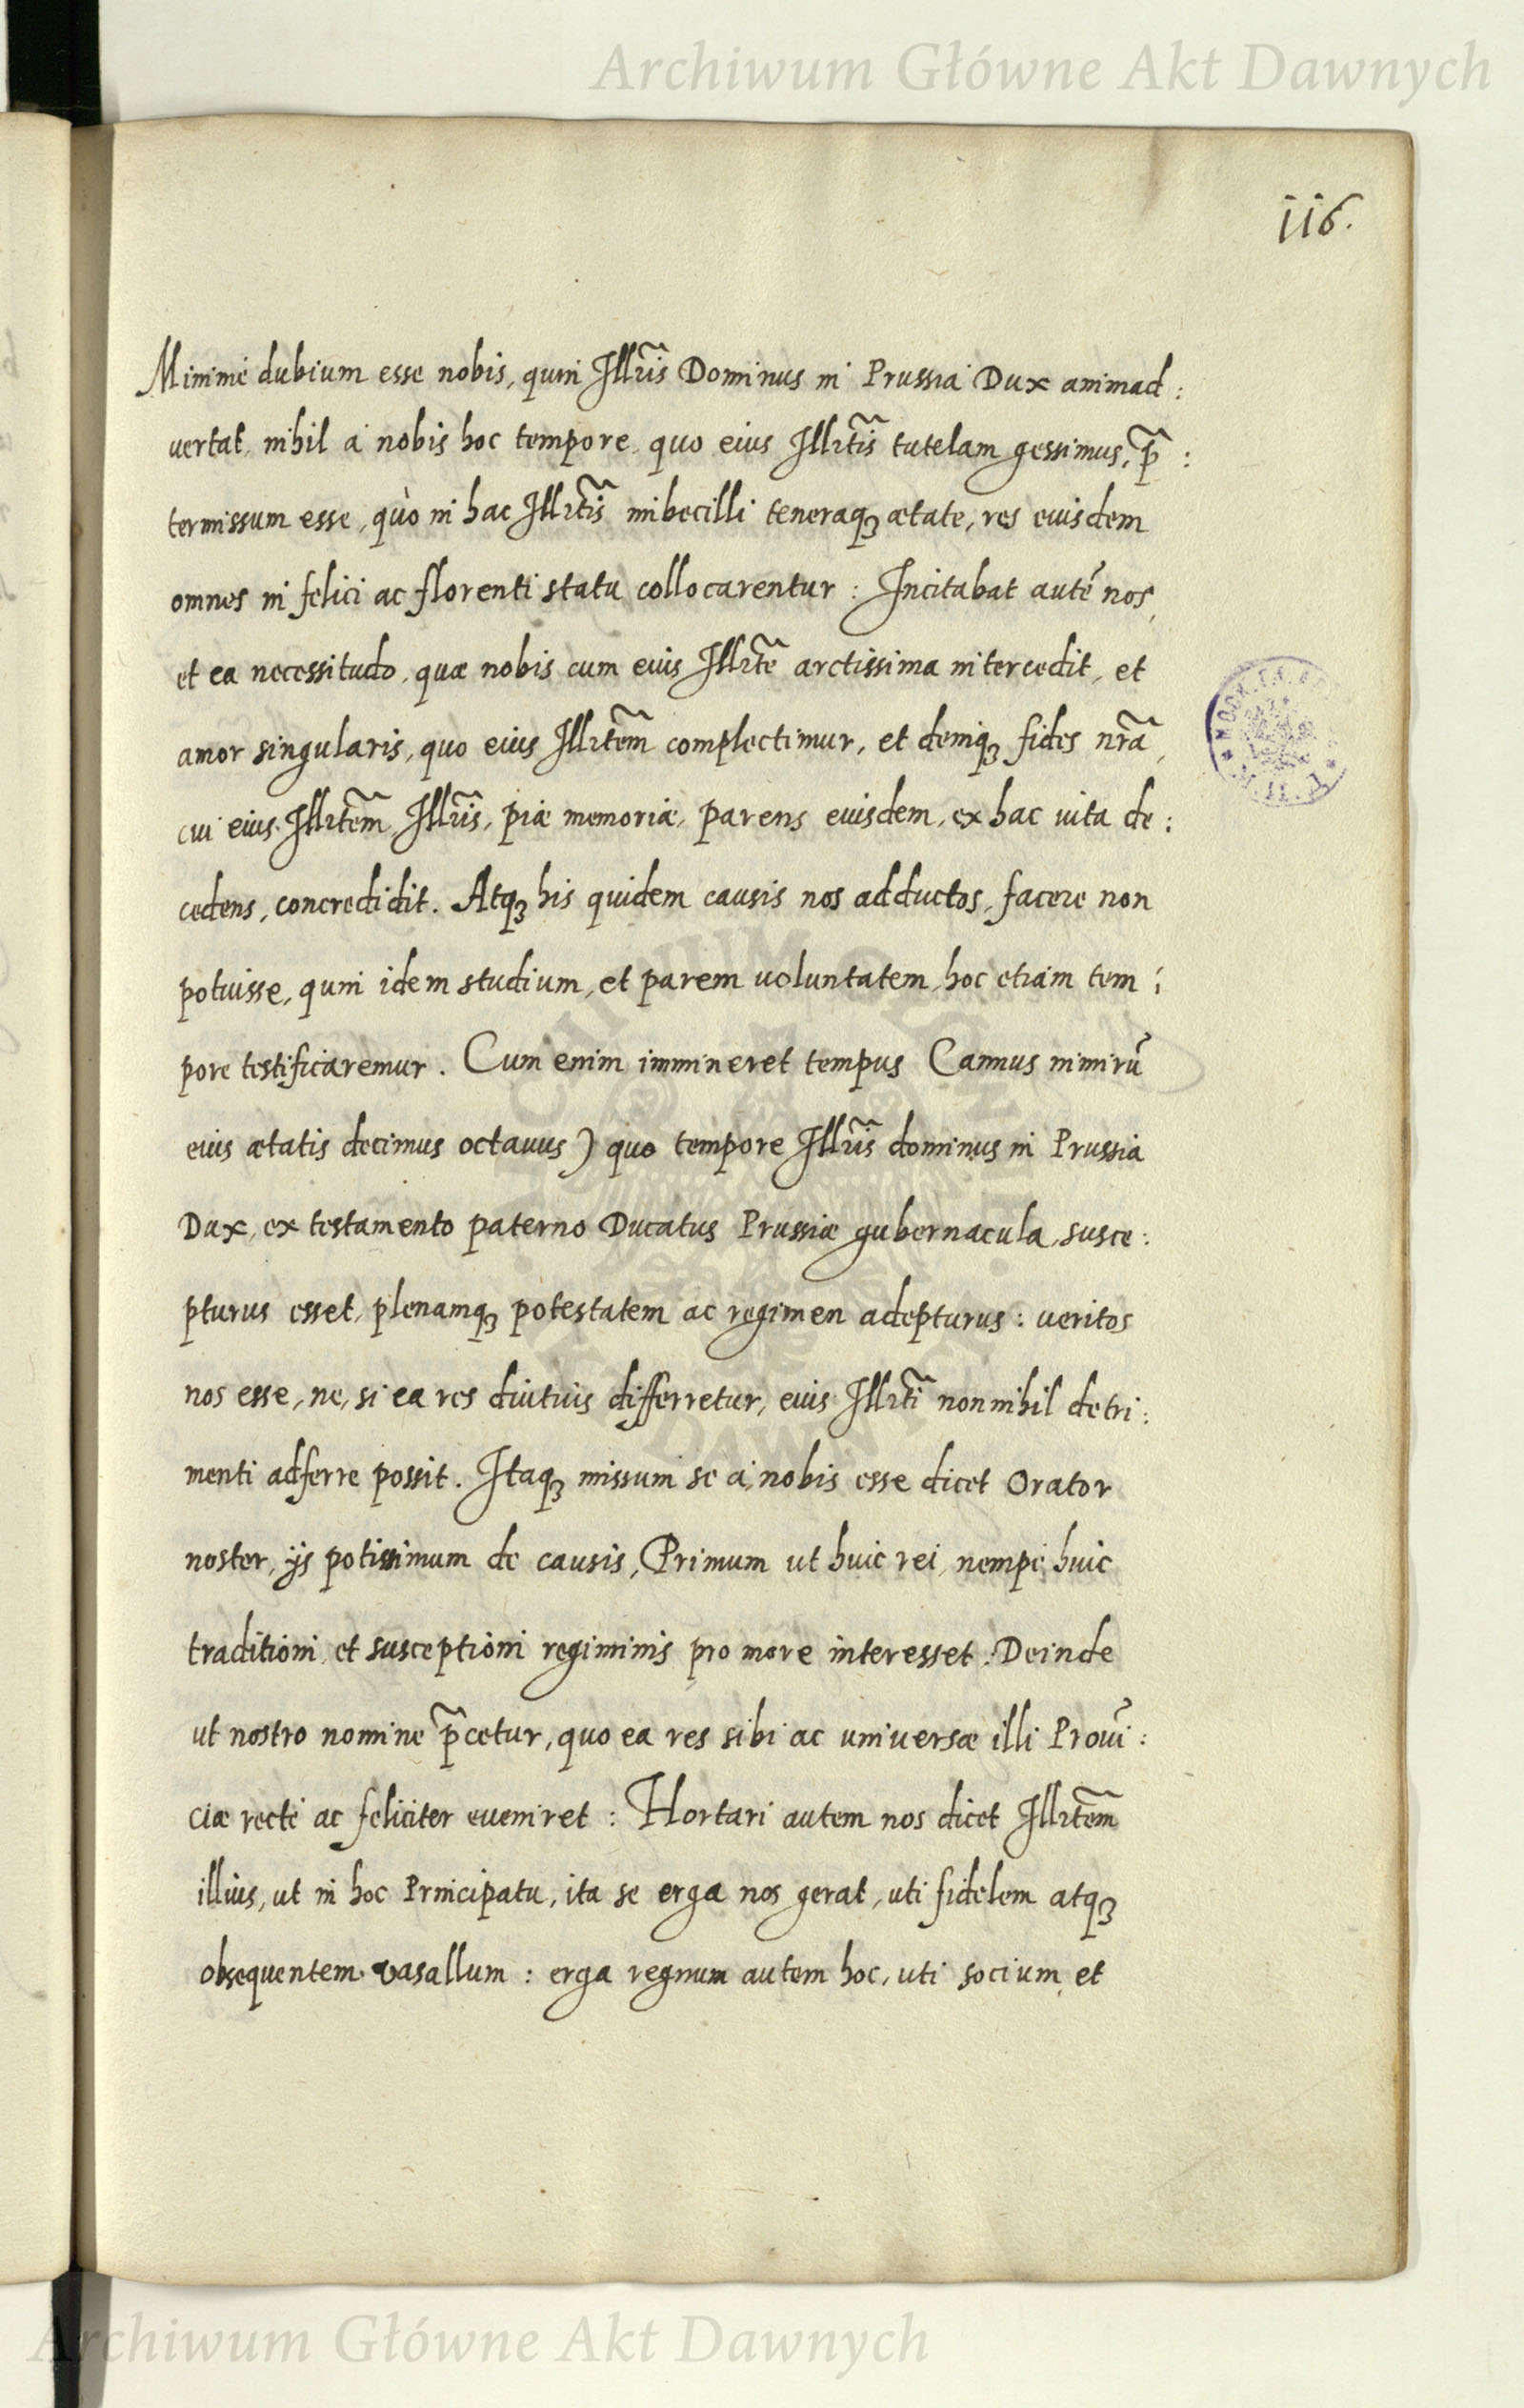 Archiwum Główne Akt Dawnych
116.
Minimè dubium esse nobis, quin Illr̃is Dominus in Prussia Dux animad:
vertat, nihil à nobis hoc tempore, quo eius Illrt̃is tutelam gessimus, p̃:
termissum esse, quò in hac Illrt̃is imbecilli teneraqꝫ ætate, res eiusdem
omnes in felici ac florenti statu collocarentur: Incitabat autẽ nos,
et ea necessitudo, quæ nobis cum eius Illrt̃e arctissima intercedit, et
amor singularis, quo eius Illrt̃em complectimur, et deniqꝫ fides nr̃a,
cui eius Illrt̃em, Illr̃is, piæ memoriæ, parens eiusdem, ex hac uita de:
cedens, concredidit. Atqꝫ his quidem causis nos adductos, facere non
potuisse, quin idem studium, et parem uoluntatem, hoc etiam tem:
pore testificaremur. Cum enim immineret tempus (annus nimirũ
eius ætatis decimus octauus) quo tempore Illr̃is dominus in Prussia
Dux, ex testamento paterno Ducatus Prussiæ gubernacula, susce:
pturus esset, plenamqꝫ potestatem ac regimen adepturus: ueritos
nos esse, ne, si ea res diutius differretur, eius Illrt̃i nonnihil detri:
menti adferre possit. Itaqꝫ missum se à nobis esse dicet Orator
noster, ijs potissimum de causis, Primum ut huic rei, nempè huic
traditioni et susceptioni regiminis pro more interesset: Deinde
ut nostro nomine p̃cetur, quo ea res sibi ac uniuersæ illi Prouĩ:
ciæ rectè ac feliciter eueniret: Hortari autem nos dicet Illrt̃em
illius, ut in hoc Principatu, ita se erga nos gerat, uti fidelem atqꝫ
obsequentem vasallum: erga regnum autem hoc, uti socium et
Archiwum Główne Akt Dawnych